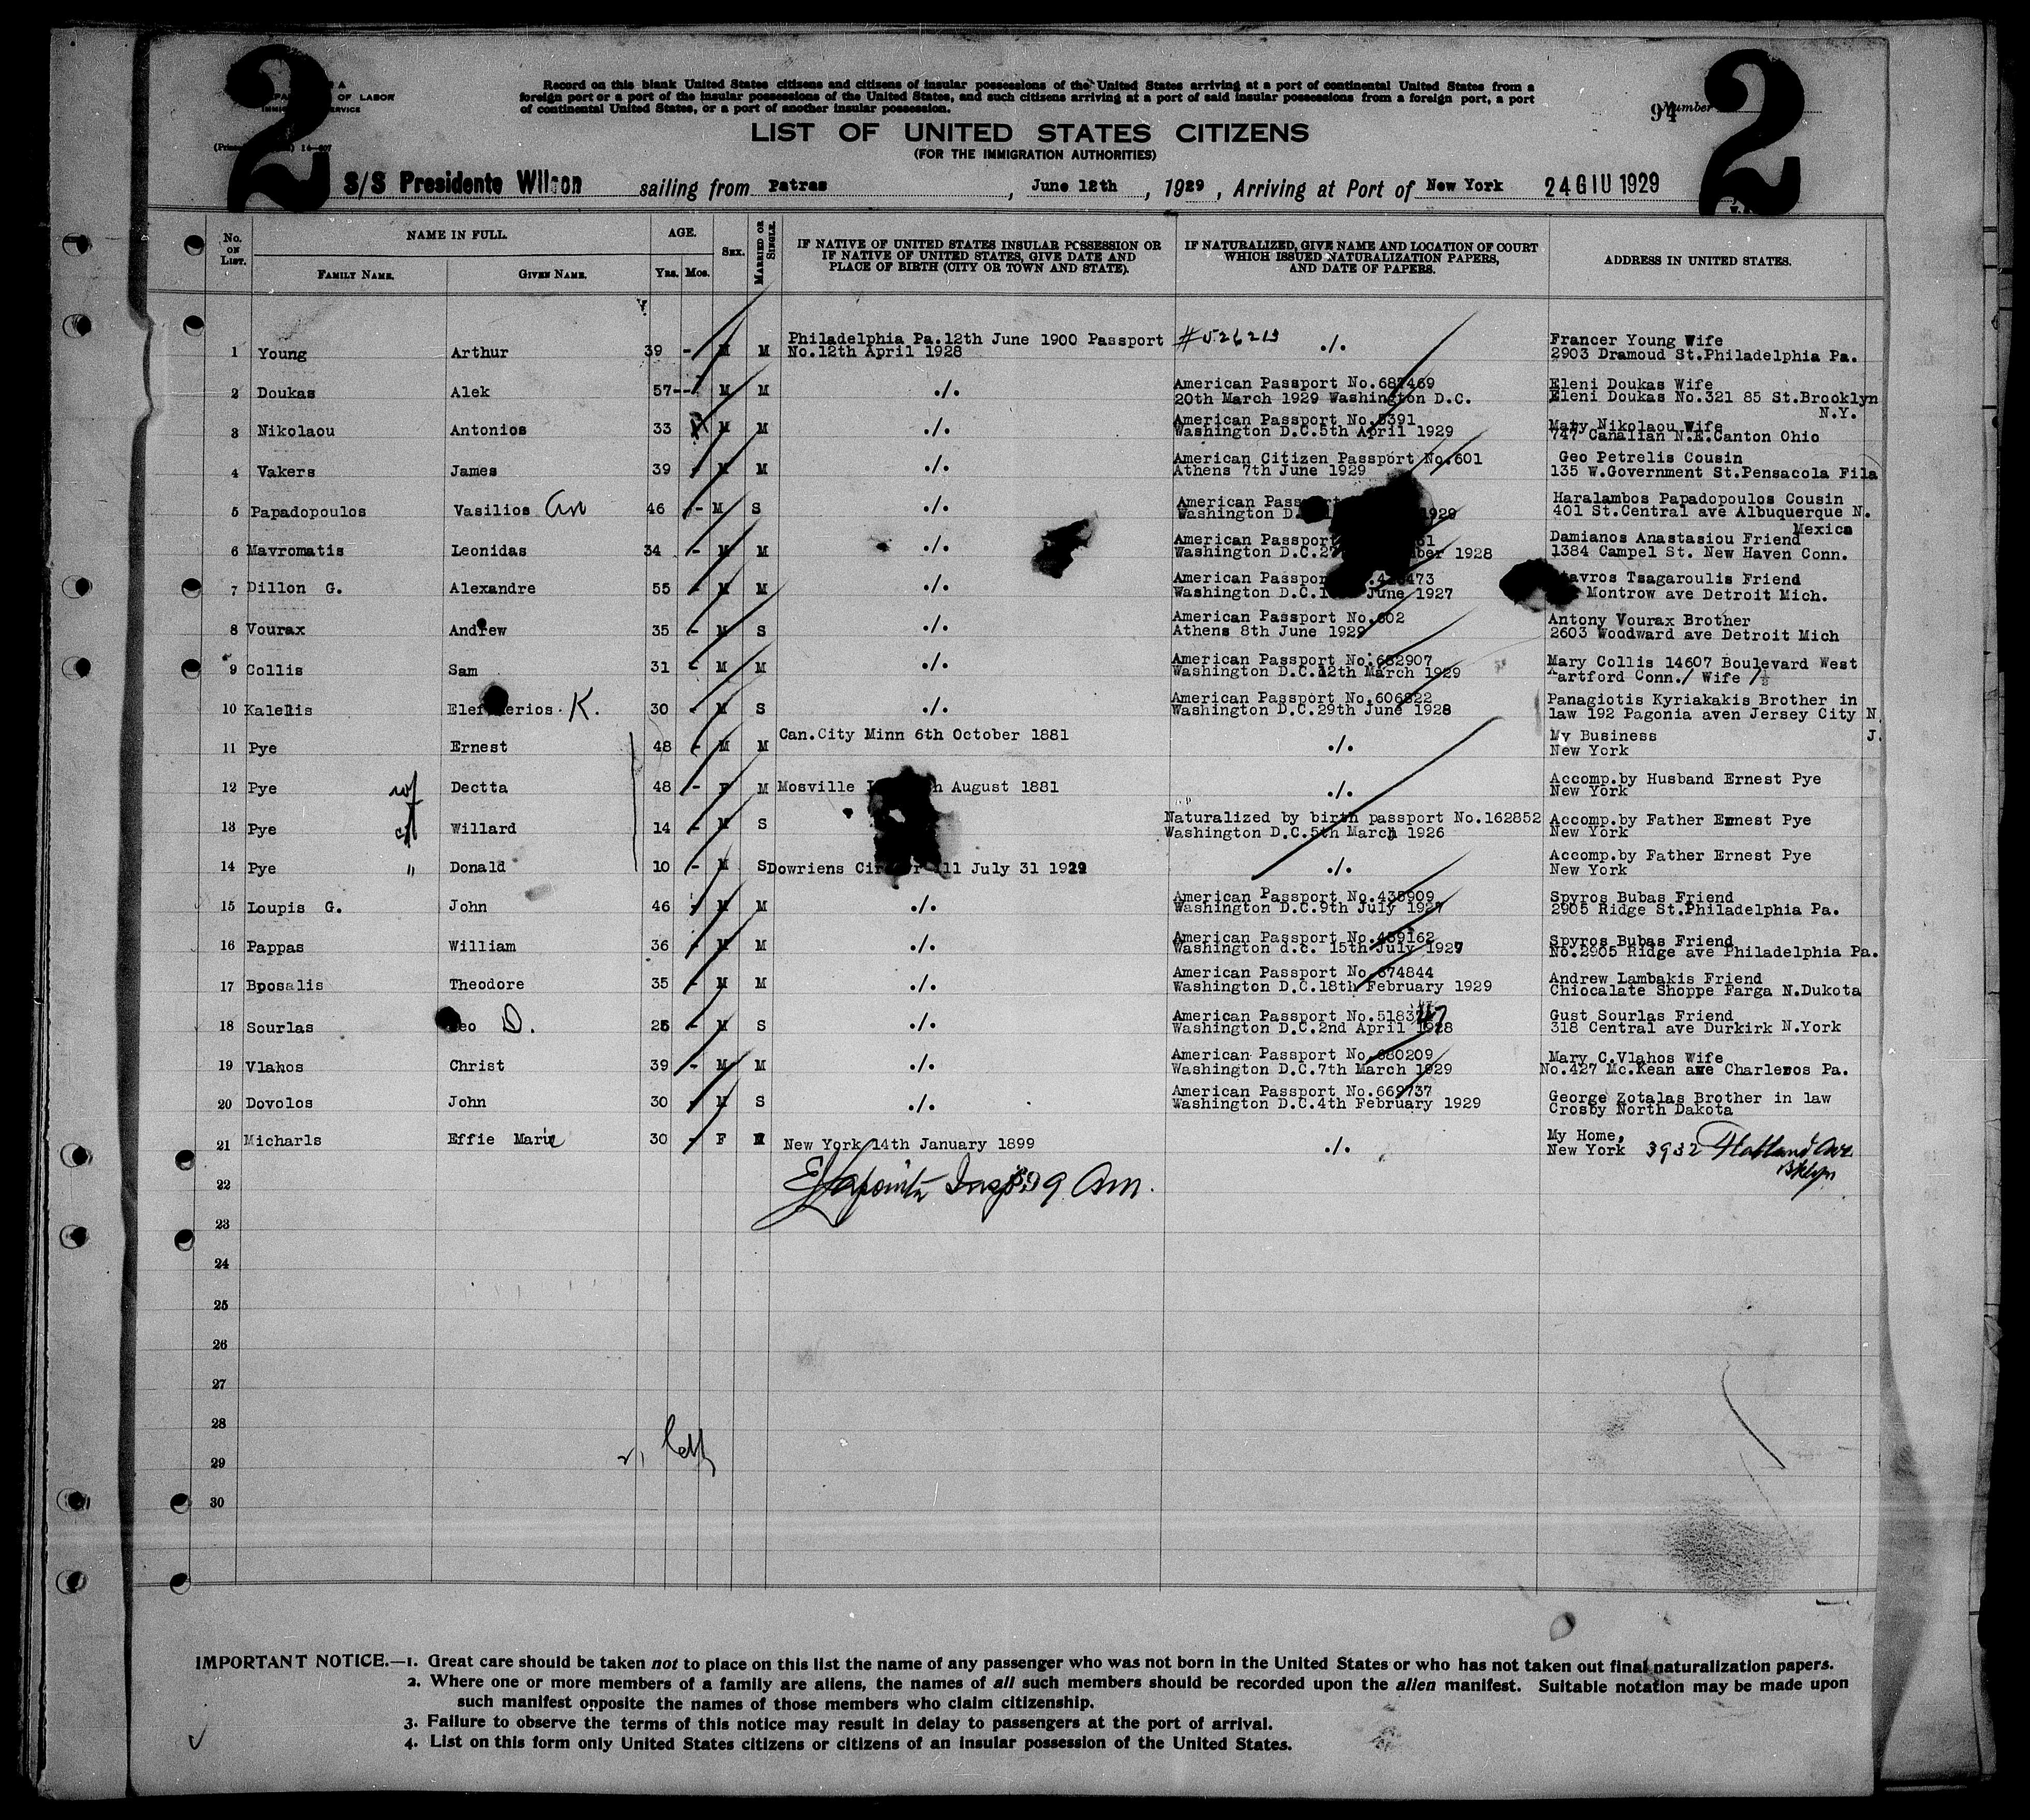 2
2
OF LABOR
Record on this blank United States citizens and citizens of insular possessions of the United States arriving at a port of continental United States from a
foreign port or a port of the insular possessions of the United States, and such citizens arriving at a port of said insular possessions from a foreign port, a port
of continental United States, or a port of another insular possession.
94 Number
LIST OF UNITED STATES CITIZENS
(FOR THE IMMIGRATION AUTHORITIES)
S/S Presidente Wilson sailing from Patras, June 12th, 1929, Arriving at Port of New York 24 GIU 1929
No. ON LIST. NAME IN FULL. FAMILY NAME. GIVEN NAME. AGE. YRS. MOS. SEX. MARRIED OR SINGLE. IF NATIVE OF UNITED STATES INSULAR POSSESSION OR IF NATIVE OF UNITED STATES, GIVE DATE AND PLACE OF BIRTH (CITY OR TOWN AND STATE). IF NATURALIZED, GIVE NAME AND LOCATION OF COURT WHICH ISSUED NATURALIZATION PAPERS, AND DATE OF PAPERS. ADDRESS IN UNITED STATES.
1 Young Arthur 39 - M M Philadelphia Pa.12th June 1900 Passport No.12th April 1928 ./. Francer Young Wife 2903 Dramoud St.Philadelphia Pa.
2 Doukas Alek 57-- M M ./. American Passport No.687469 20th March 1929 Washington D.C. Eleni Doukas Wife Eleni Doukas No.321 85 St.Brooklyn N.Y.
3 Nikolaou Antonios 33 M M ./. American Passport No.5391 Washington D.C.5th April 1929 Maty Nikolaou Wife 747 Canalian N.E.Canton Ohio
4 Vakers James 39 - M M ./. American Citizen Passport No.601 Athens 7th June 1929 Geo Petrelis Cousin 135 W.Government St.Pensacola Fila
5 Papadopoulos Vasilios 46 - M S ./. American Passport Washington D. 1929 Haralambos Papadopoulos Cousin 401 St.Central ave Albuquerque N. Mexico
6 Mavromatis Leonidas 34 - M M ./. American Passport Washington D.C. 1928 Damianos Anastasiou Friend 1384 Campel St. New Haven Conn.
7 Dillon G. Alexandre 55 - M M ./. American Washington D.C. June 1927 Tsagaroulis Friend Montrow ave Detroit Mich.
8 Vourax Andrew 35 - M S ./. American Passport No.602 Athens 8th June 1929 Antony Vourax Brother 2603 Woodward ave Detroit Mich
9 Collis Sam 31 - M M ./. American Passport No.682907 Washington D.C.12th March 1929 Mary Collis 14607 Boulevard West artford Conn./ Wife /
10 Kalelis K. 30 - M S ./. American Passport No.606822 Washington D.C.29th June 1928 Panagiotis Kyriakakis Brother in law 192 Pagonia aven Jersey City N. J.
11 Pye Ernest 48 - M M Can.City Minn 6th October 1881 ./. My Business New York
12 Pye wf Dectta 48 - F M Mosville August 1881 ./. Accomp.by Husband Ernest Pye New York
13 Pye Willard 14 - M S Naturalized by birth passport No.162852 Washington D.C.5th March 1926 Accomp.by Father Ernest Pye New York
14 Pye " Donald 10 - M S Dowriens July 31 1929 ./. Accomp.by Father Ernest Pye New York
15 Loupis G. John 46 - M M ./. American Passport No.435909 Washington D.C.9th July 1927 Spyros Bubas Friend 2905 Ridge St.Philadelphia Pa.
16 Pappas William 36 - M M ./. American Passport No.439162 Washington d.c. 15th July 1927 Spyros Bubas Friend No.2905 Ridge ave Philadelphia Pa.
17 Bposalis Theodore 35 - M M ./. American Passport No.674844 Washington D.C.18th February 1929 Andrew Lambakis Friend Chiocalate Shoppe Farga N.Dukota
18 Sourlas D. - M S ./. American Passport Washington D.C.2nd April 1928 Gust Sourlas Friend 318 Central ave Durkirk N.York
19 Vlahos Christ 39 - M M ./. American Passport No.680209 Washington D.C.7th March 1929 Mary C.Vlahos Wife No.427 Mc.Kean ave Charleros Pa.
20 Dovolos John 30 - M S ./. American Passport No.669737 Washington D.C.4th February 1929 George Zotalas Brother in law Crosby North Dakota
21 Micharls Effie Marie 30 - F New York 14th January 1899 ./. My Home, New York 3932 Flatland Ave Bklyn
22
23
24
25
26
27
28
29
30
IMPORTANT NOTICE.—1. Great care should be taken not to place on this list the name of any passenger who was not born in the United States or who has not taken out final naturalization papers.
2. Where one or more members of a family are aliens, the names of all such members should be recorded upon the alien manifest. Suitable notation may be made upon
such manifest opposite the names of those members who claim citizenship.
3. Failure to observe the terms of this notice may result in delay to passengers at the port of arrival.
4. List on this form only United States citizens or citizens of an insular possession of the United States.